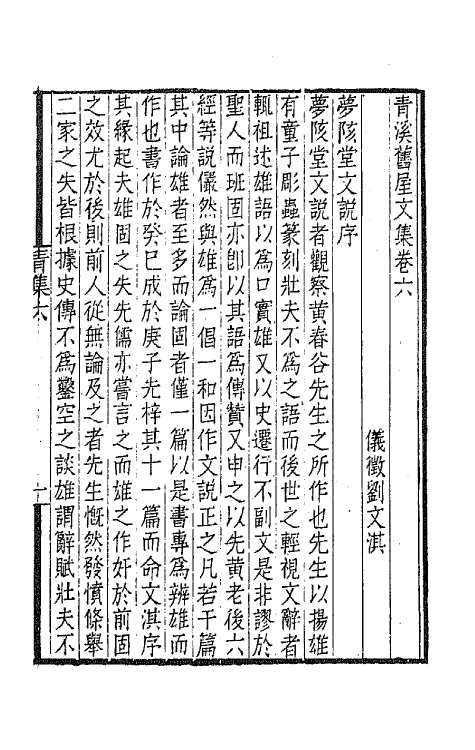 青溪舊屋文集卷六
儀徵劉文淇
夢陔堂文說序
夢陔堂文說者觀察黄春谷先生之所作也先生以揚雄
有童子彫蟲篆刻壯夫不爲之語而後世之輕視文辭者
輒祖述雄語以爲口實雄又以史遷行不副文是非謬於
聖人而班固亦卽以其語爲傳贊又申之以先黄老後六
經等說儼然與雄爲一倡一和因作文說正之凡若干篇
其中論雄者至多而論固者僅一篇以是書專爲辨雄而
作也書作於癸巳成於庚子先梓其十一篇而命文淇序
其緣起夫雄固之失先儒亦嘗言之而雄之作奸於前固
之效尤於後則前人從無論及之者先生慨然發憤條舉
二家之失皆根據史傳不爲鑿空之談雄謂辭賦壯夫不
青集六
一